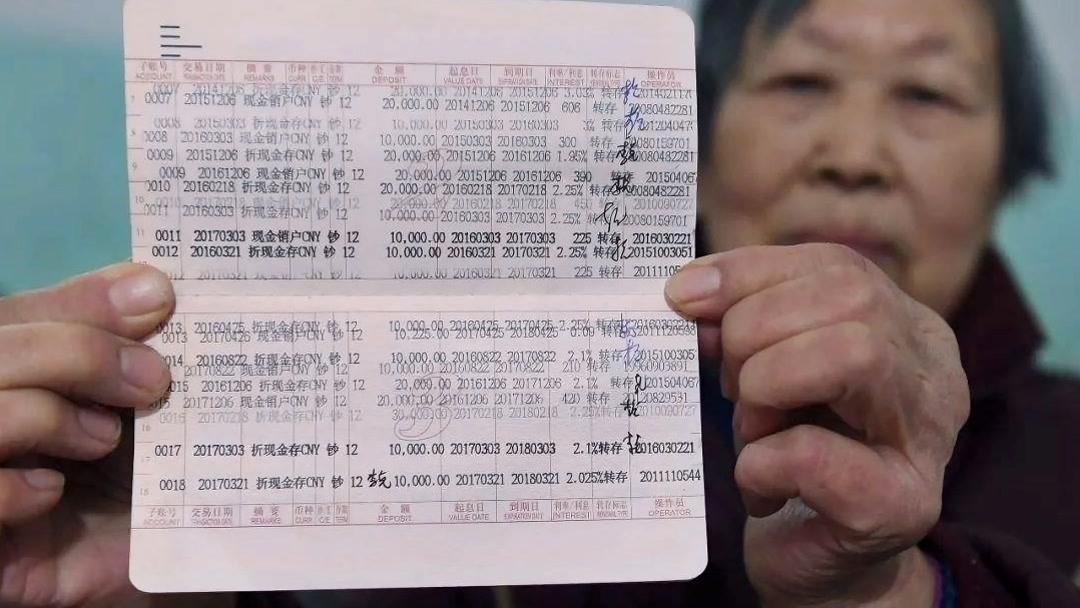 子账号 交易日期 摘要 币种 金额 起息日 到期日 利率/利息 转存标志 操作员
ACCOUNT REMARKS CURR C/E TERM DEPOSIT VALUE DATE INTEREST OPERATOR
0007 20141206 折现金存CNY 钞 12 20,000.00 20141206 20151206 转存
0007 20151206 现金销户CNY 钞 12 20,000.00 20141206 20151206 606 转存 20080482281
0008 20150303 折现金存CNY 钞 12 10,000.00 20150303 20160303 3% 转存
0008 20160303 现金销户CNY 钞 12 10,000.00 20150303 20160303 300 转存 20080159701
0009 20151206 折现金存CNY 钞 12 20,000.00 20151206 20161206 1.95% 转存 20080482281
0009 20161206 现金销户CNY 钞 12 20,000.00 20151206 20161206 390 转存 201504067
0010 20160218 折现金存CNY 钞 12 20,000.00 20160218 20170218 2.25% 转存 20080482281
20170218 450 转存 2010090727
0011 20160303 折现金存CNY 钞 12 10,000.00 20160303 20170303 2.25% 转存 20080159701
0011 20170303 现金销户CNY 钞 12 10,000.00 20160303 20170303 225 转存 2016030221
0012 20160321 折现金存CNY 钞 12 10,000.00 20160321 20170321 2.25% 转存 20151003051
10,000.00 20160321 20170321 225 转存
0013 20160425 折现金存CNY 钞 12 10,000.00 20160425 20170425 2.25% 转存
0013 20170426 现金销户CNY 钞 12 10,225.00 20170425 20180425
0014 20160822 折现金存CNY 钞 12 10,000.00 20160822 20170822 2.1% 转存 2015100305
20170822 现金销户CNY 钞 12 10,000.00 20160822 20170822 210 转存
0015 20161206 折现金存CNY 钞 12 20,000.00 20161206 20171206 2.1% 转存 201504067
20171206 现金销户CNY 钞 12 20,000.00 20161206 20171206 420 转存
0016 20170218 折现金存CNY 钞 12 30,000.00 20170218 20180218 2.25% 转存 2010090727
0017 20170303 折现金存CNY 钞 12 10,000.00 20170303 20180303 2.1%转存 2016030221
0018 20170321 折现金存CNY 钞 12 10,000.00 20170321 20180321 2.025%转存 2011110544
子账号 交易日期 摘要 币种 金额 起息日 到期日 利率/利息 转存标志 操作员
ACCOUNT REMARKS CURR C/E TERM DEPOSIT VALUE DATE INTEREST OPERATOR